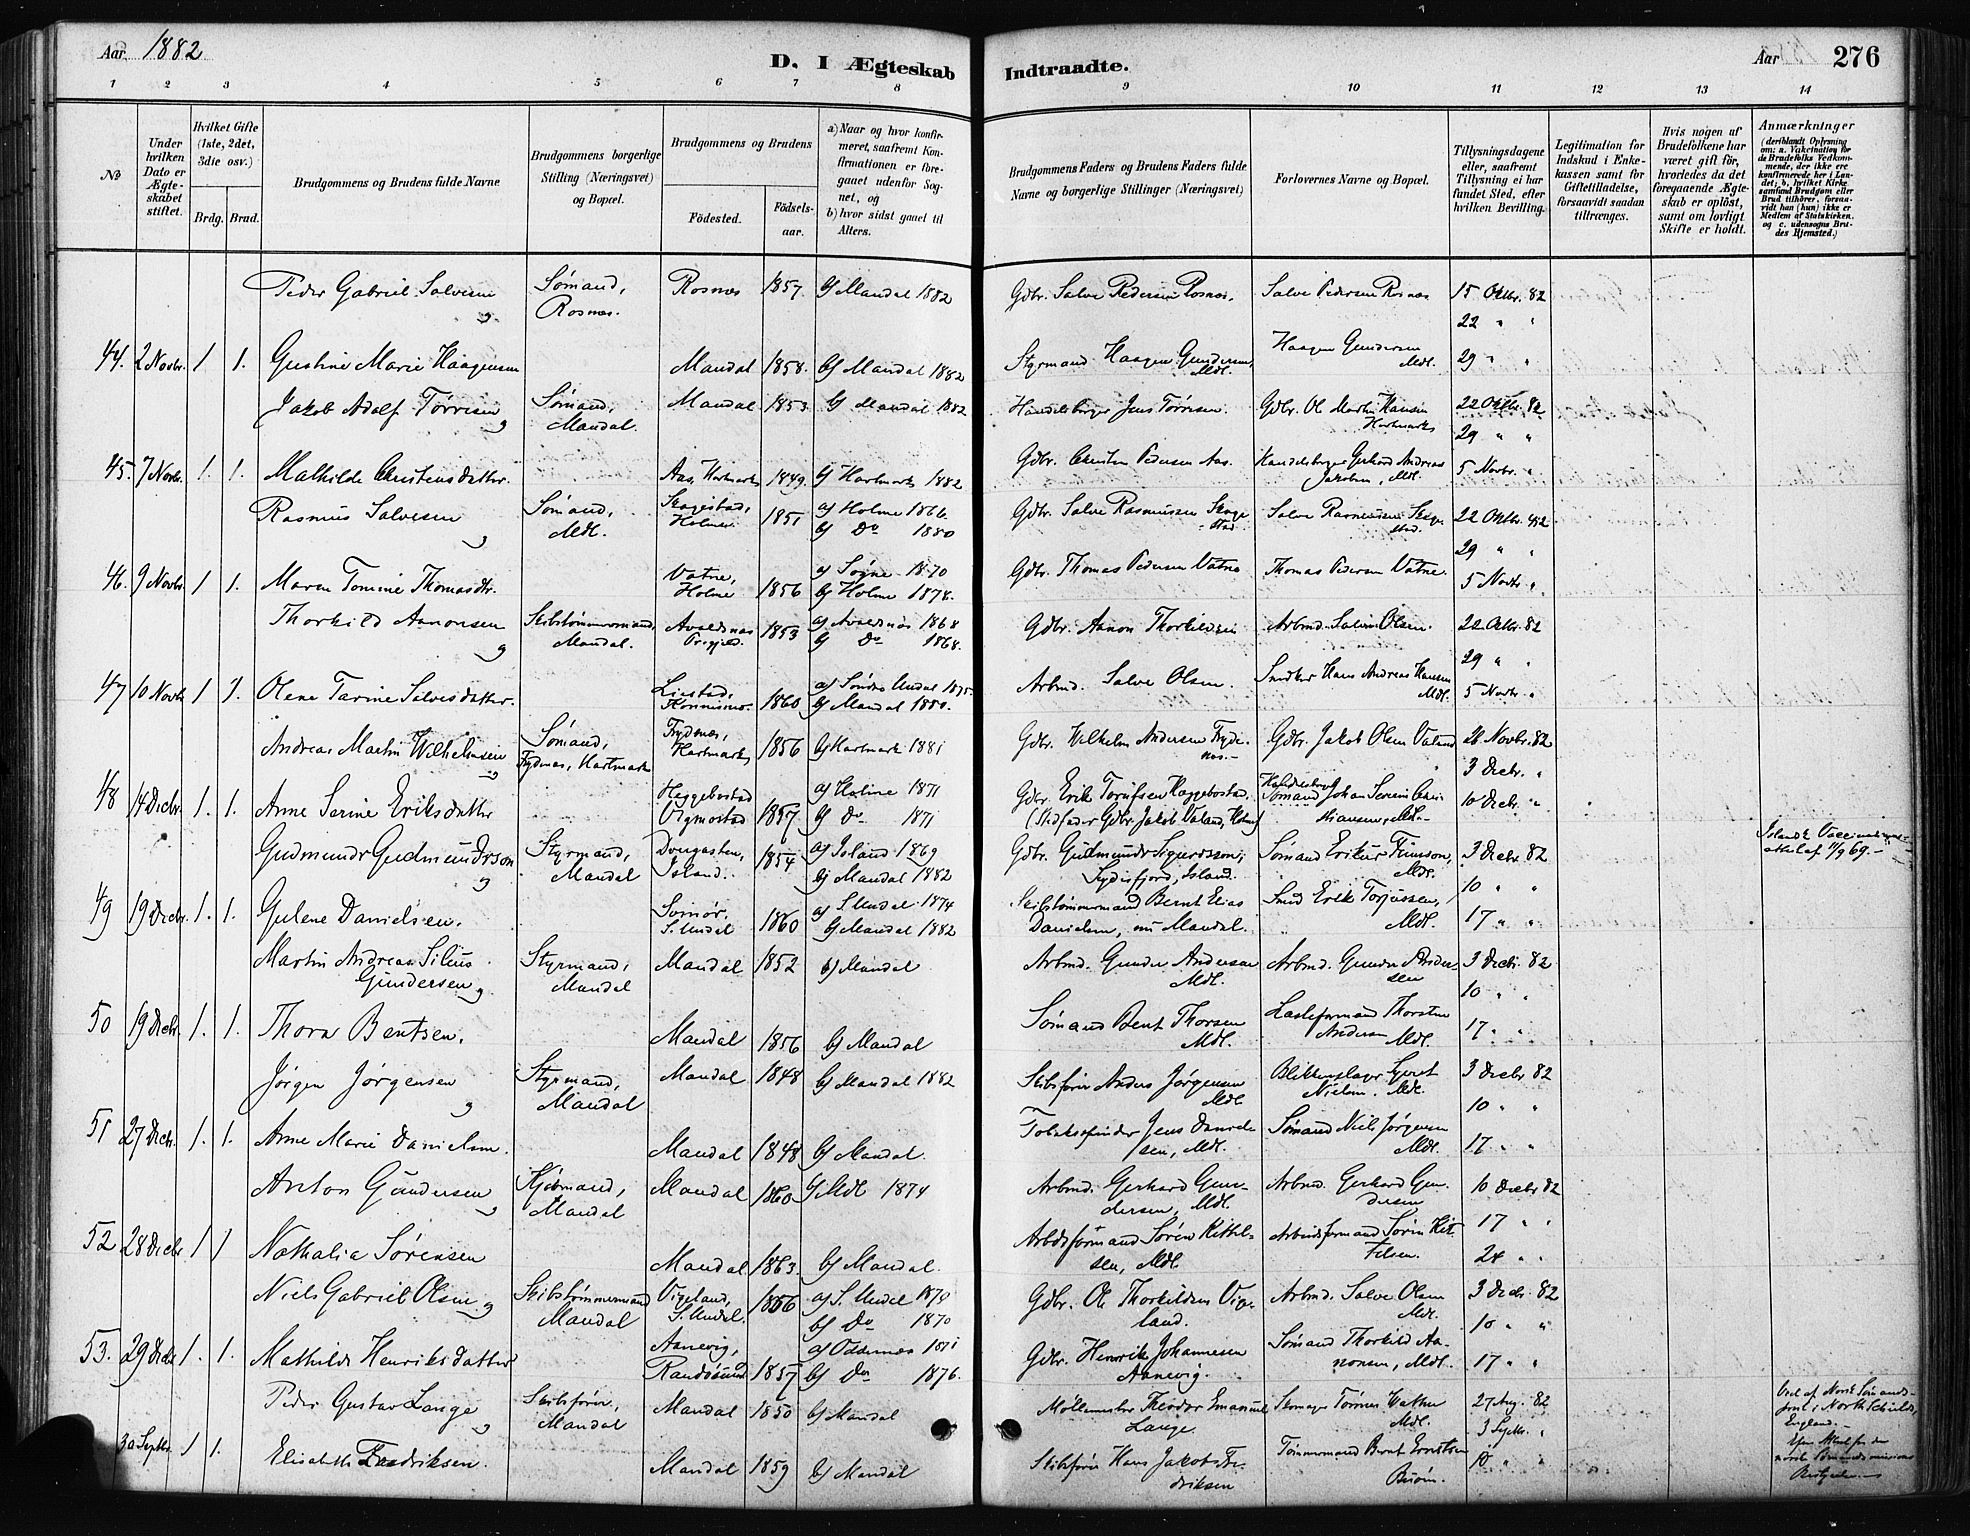 Aar 1882
D. I Ægteskab Indtraadte.
Aar 276
1 2 3 4 5 6 7 8 9 10 11 12 13 14
No
Under hvilken Dato er Ægteskabet stiftet.
Hvilket Gifte (1ste, 2det, 3die osv.)
Brdg. Brud.
Brudgommens og Brudens fulde Navne
Brudgommens borgerlige Stilling (Næringsvei) og Bopæl.
Brudgommens og Brudens
Fødested.
Fødselsaar.
a) Naar og hvor konfirmeret, saafremt Konfirmationen er foregaaet udenfor Sognet, og
b) hvor sidst gaaet til Alters.
Brudgommens Faders og Brudens Faders fulde Navne og borgerlige Stillinger (Næringsvei)
Forlovernes Navne og Bopæl.
Tillysningsdagene eller, saafremt Tillysning ei har fundet Sted, efter hvilken Bevilling.
Legitimation for Indskud i Enkekassen samt for Giftetilladelse, forsaavidt saadan tiltrænges.
Hvis nogen af Brudefolkene har været gift før, hvorledes da det foregaaende Ægteskab er opløst, samt om lovligt Skifte er holdt.
Anmærkninger (deriblandt Oplysning om: a. Vakcination for de Brudefolks Vedkommende, der ikke ere konfirmerede her i Landet; b. hvilket Kirkesamfund Brudgom eller Brud tilhører, forsaavidt han (hun) ikke er Medlem af Statskirken, og c. udensogns Brudes Hjemsted.)
Peder Gabriel Salvesen Sømand, Rosnæs 1857. b) Mandal 1882 Gdbr. Salve Pedersen Rosnæs. Salve Pedersen Rosnæs 15 Oktbr. 82
og Rosnæs. 22 " "
44. 2 Novbr. 1 1. Gustine Marie Haagensen Mandal 1858. b) Mandal 1882 Styrmand Haagen Gundersen, Mdl. Haagen Gundersen Mdl. 29 " "
Jakob Adolf Tørresen Sømand, Mandal 1853 b) Mandal 1882 Handelsborger Jens Tørresen. Gdbr. Ol Martin Hansen Hartmark 22 Oktbr. 82
og Mandal. 29 " "
45. 7 Novbr. 1. 1. Mathilde Christensdatter. Aas, Hartmark 1849. b) Hartmark 1882 Gdbr. Christen Pedersen Aas. Handelsborger Gerhard Andreas Jakobsen, Mdl. 5 Novbr. "
Rasmus Salvesen Sømand, Skogestad, Holme 1851 a) Holme 1866 Gdbr. Salve Rasmussen Skogestad Salve Rasmussen Skogestad. 22 Oktbr. 82
og Mdl. b) Do 1880 29 " "
46. 9 Novbr. 1 1. Maren Tomine Thomasdtr. Vatne, Holme 1856 a) Søgne 1870 Gdbr. Thomas Pedersen Vatne Thomas Pedersen Vatne. 5 Novbr. "
b) Holme 1878.
Thorkild Aanonsen Skibstømmermand, Avaldsnæs Prgjeld. 1853 a) Avaldsnæs 1868 Gdbr. Aanon Thorkildsen Arbmd. Salve Olsen. 22 Oktbr. 82
og Mandal. b) Do 1868. 29 " "
47 10 Novbr 1 1. Olene Tarine Salvesdatter. 1860 a) Søndre Undal 1875. Arbmd. Salve Olsen. Snedker Hans Andreas Hansen Mdl. 5 Novbr. "
b) Mandal 1880.
Andreas Martin Wilhelmsen Sømand, Frydnæs, Hartmark 1856 b) Hartmark 1881 Gdbr. Wilhelm Andersen Frydenæs.- Gdbr. Jakob Olsen Valand 26 Novbr. 82
og Frydnæs, Hartmark 3 Decbr. "
48 14 Decbr. 1. 1. Anne Serine Eriksdatter Heggebostad Vegmostad 1857 a) Holme 1871 Gdbr. Erik Heggebostad (Stedfader Gdbr. Jakob Valand, Holme) Johan Severin Christiansen, Mdl.- 10 Decbr. "
b) Do 1871
Gudmundr Gudmundsson Styrmand, Island. 1854 a) Island 1869 Gdbr. Gudmundr Sigurdsson, Sydisfjord, Island. Sømand Erikur Mdl. 3 Decbr. 82
og Mandal b) Mandal 1882 10 " "
49 19 Decbr. 1. 1. Gulene Danielsen. S. Undal 1860 a) S. Undal 1874 Skibstømmermand Bernt Elias Danielsen, nu Mandal. Smed Erik Torjussen, Mdl. 17 " "
b) Mandal 1882
Martin Andreas Gundersen og Styrmand, Mandal Mandal 1852 b) Mandal Arbmd. Gunder Andersen Mdl. Arbmd. Gunder Andersen 3 Decbr. 82
10 " "
50 19 Decbr. 1. 1. Thora Bentsen. Mandal 1856 b) Mandal Sømand Bent Thorsen Mdl. Lasteformand Thorsten Andersen Mdl. 17 " "
Jørgen Jørgensen og Styrmand, Mandal Mandal 1848 b) Mandal 1882 Skibsfører Anders Jørgensen Mdl. Blikkenslager Syvert Nielsen, Mdl. 3 Decbr 82
10 " "
51 27 Decbr. 1. 1. Anne Marie Danielsen. Mandal 1848 b) Mandal. Tobaksspinder Jens Danielsen, Mdl. Sømand Niels Jørgensen Mdl. 17 " "
Anton Gundersen og Kjøbmand, Mandal Mandal 1860 b) Mdl 1874 Arbmd. Gerhard Gundersen, Mdl. Arbmd. Gerhard Gundersen 10 Decbr 82
17 " "
52 28 Decbr 1 1 Nathalia Sørensen Mandal 1863. b) Mandal. Arbdsformand Søren Kittelsen, Mdl. Arbeidsformand Søren Kittelsen. 24 " "
Niels Gabriel Olsen og Skibstømmermand Mandal Vigeland, S. Undal. 1856 a) S. Undal 1870 Gdbr. Ole Thorkildsen Vigeland. Arbmd. Salve Olsen Mdl. 3 Decbr. 82
b) Do 1870 10 " "
53. 29 Decbr 1. 1. Mathilde Henriksdatter Aanevig, Randøsund 1857 a) Oddernæs 1871 Gdbr. Henrik Johannesen Aanevig. Sømand Thorkild Aanonsen, Mdl. 17 " "
b) Do 1876.
Peder Gustav Lange og Skibsfører, Mandal Mandal 1850 b) Mandal Møllemester Theodor Emanuel Lange. Tørres Mdl. 27 Aug. 82
3 Septbr. "
30 Septbr. 1 1. Elisabeth Fredriksen. Mandal 1859 b) Mandal Skibsfører Hans Jakob Fredriksen Tømmermand Bernt Erntsen 10 " "
Islandsk Vaccinationsattest af 11/9 69.-
Viet af Norsk Sømandsprest i North Schields, England.-